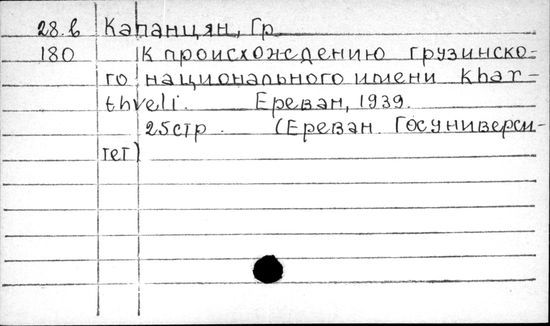 28.b Капанцян, Гр
180 К происхождению грузинско-
го национального имени khar-
thveli. Ереван, 1939.
25стр. (Ереван. Госуниверси-
тет)